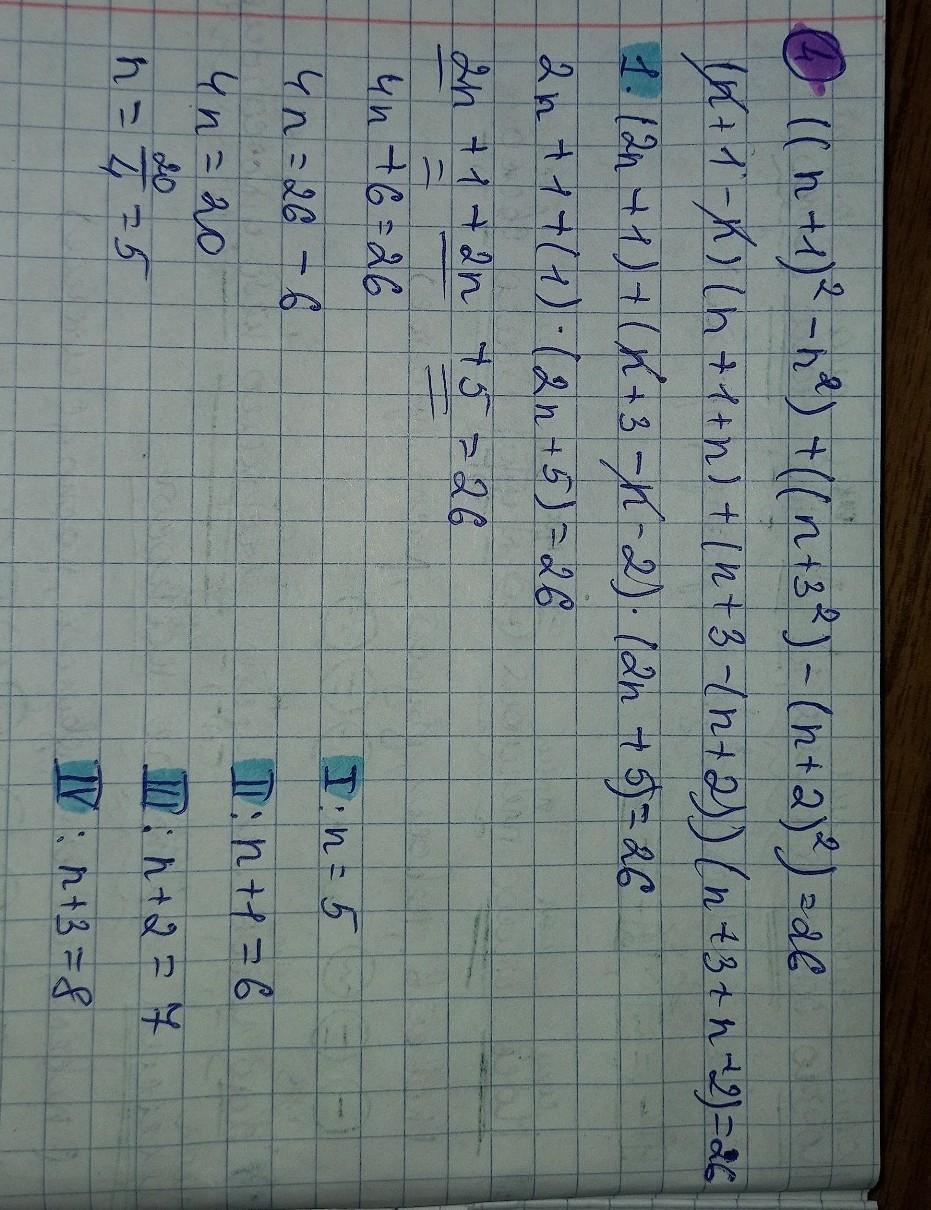 1. ((n+1)² - n²) + ((n+3²) - (n+2)²) = 26
(n+1-n)(n+1+n) + (n+3-(n+2))(n+3+n+2) = 26
1. (2n+1) + (n+3-n-2)·(2n+5) = 26
2n+1+(1)·(2n+5) = 26
2n+1+2n+5 = 26
4n+6 = 26
4n = 26-6
4n = 20
n = 20/4 = 5
I: n = 5
II: n+1 = 6
III: n+2 = 7
IV: n+3 = 8